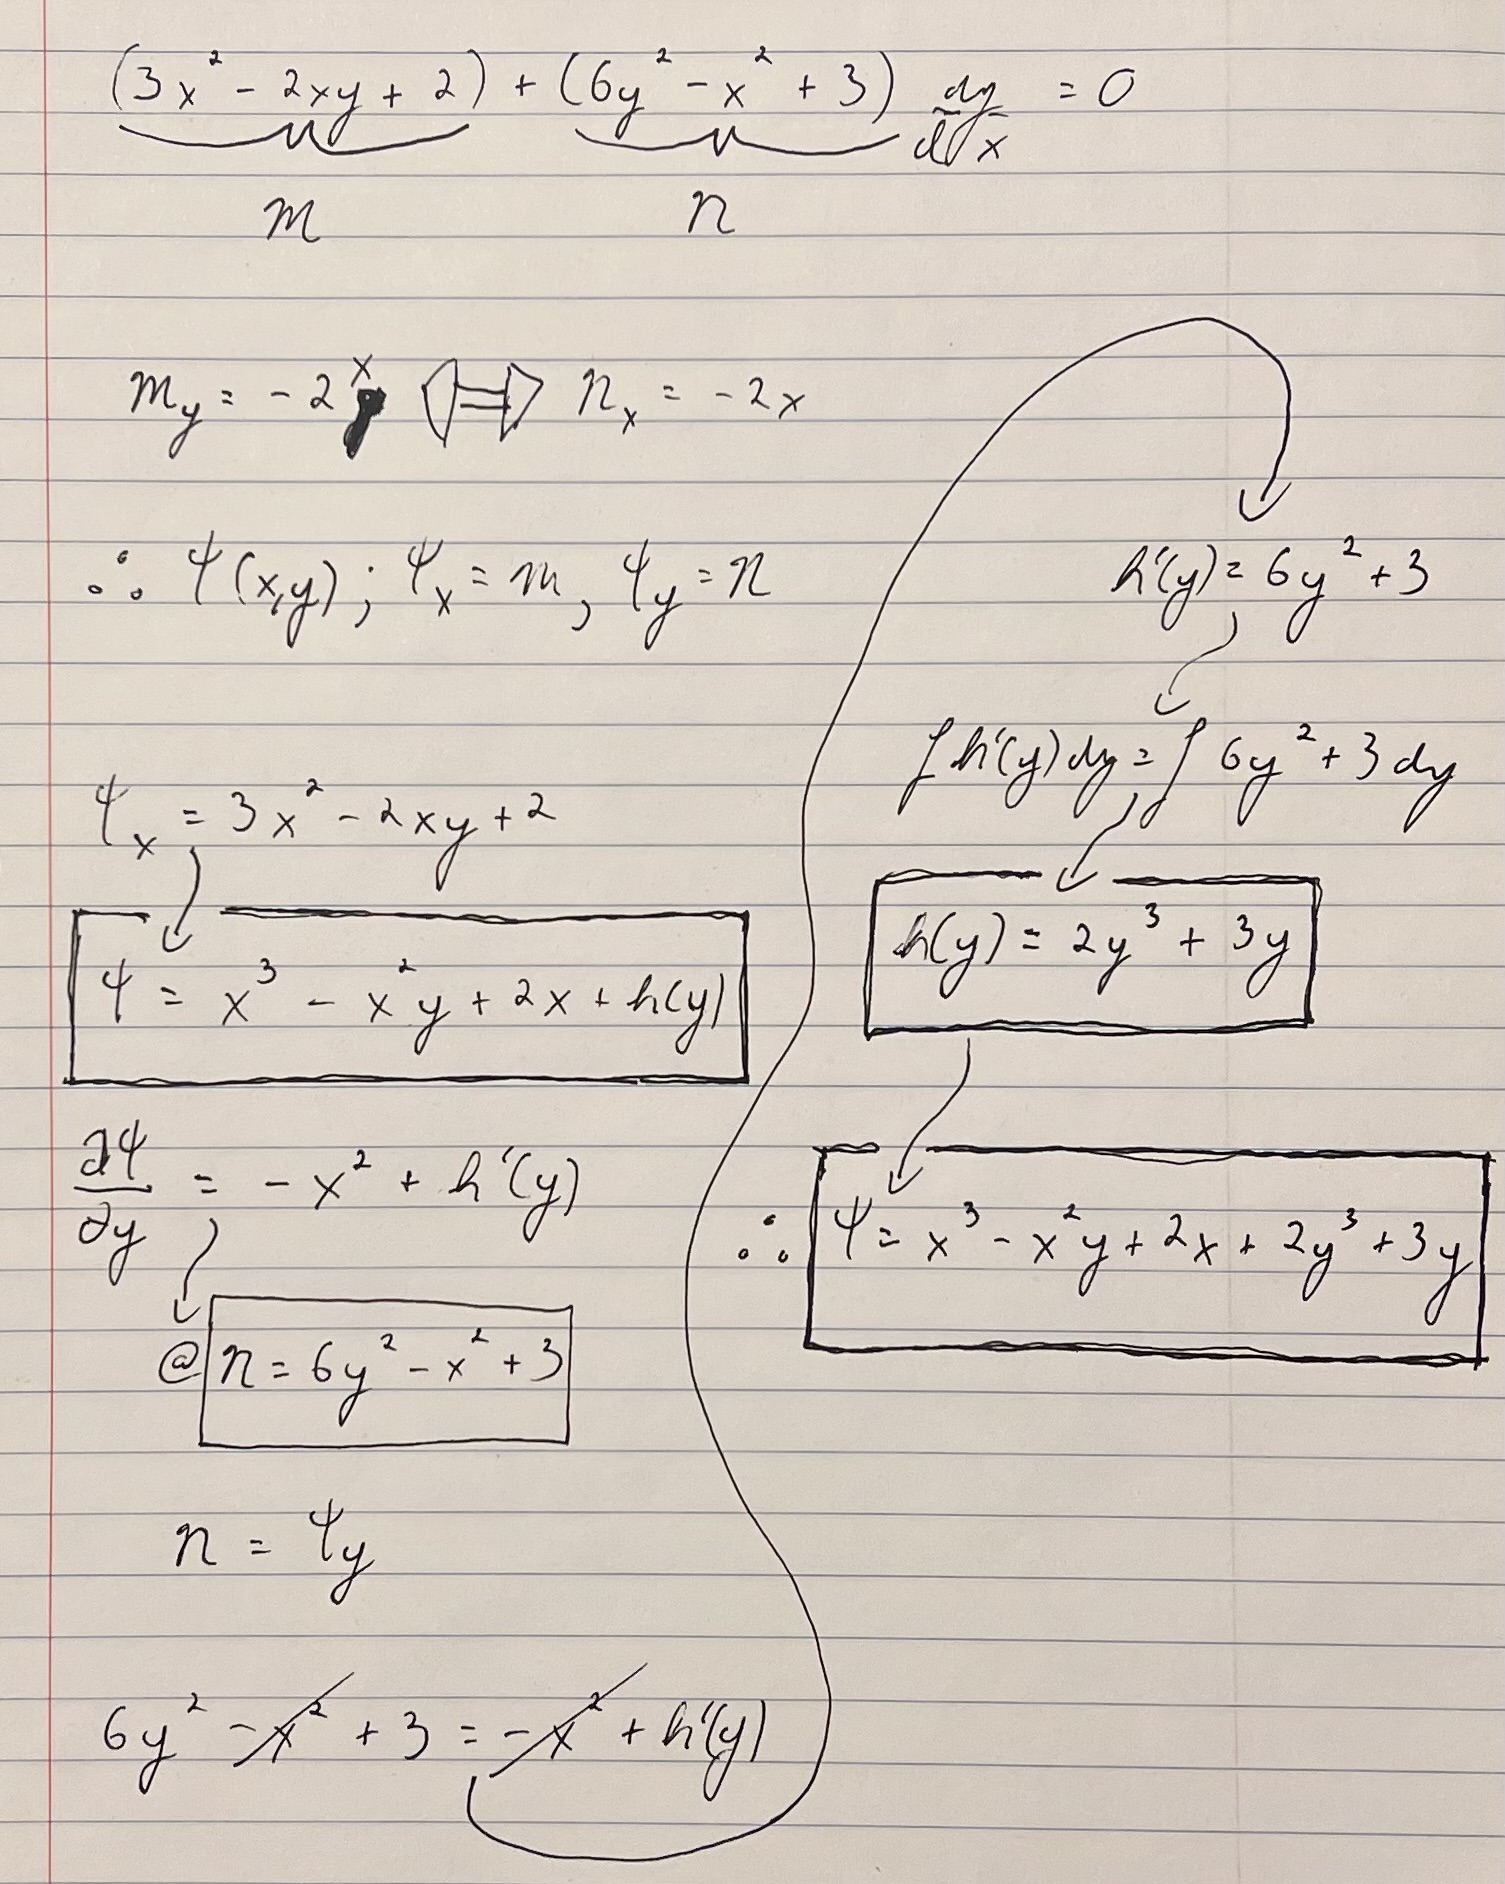 (3x² - 2xy + 2) + (6y² - x² + 3) dy/dx = 0
m n
m_y = -2x ⇔ n_x = -2x
∴ ψ(x,y); ψ_x = m, ψ_y = n
ψ_x = 3x² - 2xy + 2
ψ = x³ - x²y + 2x + h(y)
∂ψ/∂y = -x² + h'(y)
@ n = 6y² - x² + 3
n = ψ_y
6y² - x² + 3 = -x² + h'(y)
h'(y) = 6y² + 3
∫ h'(y) dy = ∫ 6y² + 3 dy
h(y) = 2y³ + 3y
∴ ψ = x³ - x²y + 2x + 2y³ + 3y